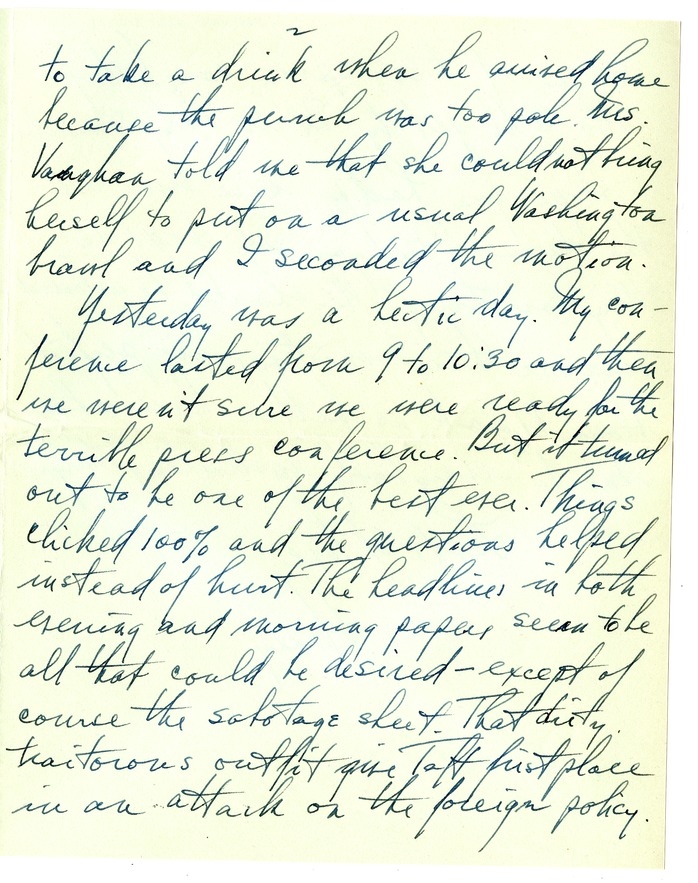 2
to take a drink when he arrived home
because the punch was too pale. Mrs.
Vaughan told me that she could not bring
herself to put on a usual Washington
brawl and I seconded the motion.
Yesterday was a hectic day. My con-
ference lasted from 9 to 10:30 and then
we weren't sure we were ready for the
terrible press conference. But it turned
out to be one of the best ever. Things
clicked 100% and the questions helped
instead of hurt. The headlines in both
evening and morning papers seem to be
all that could be desired - except of
course the sabotage sheet. That dirty
traitorous outfit give Taft first place
in an attack on the foreign policy.